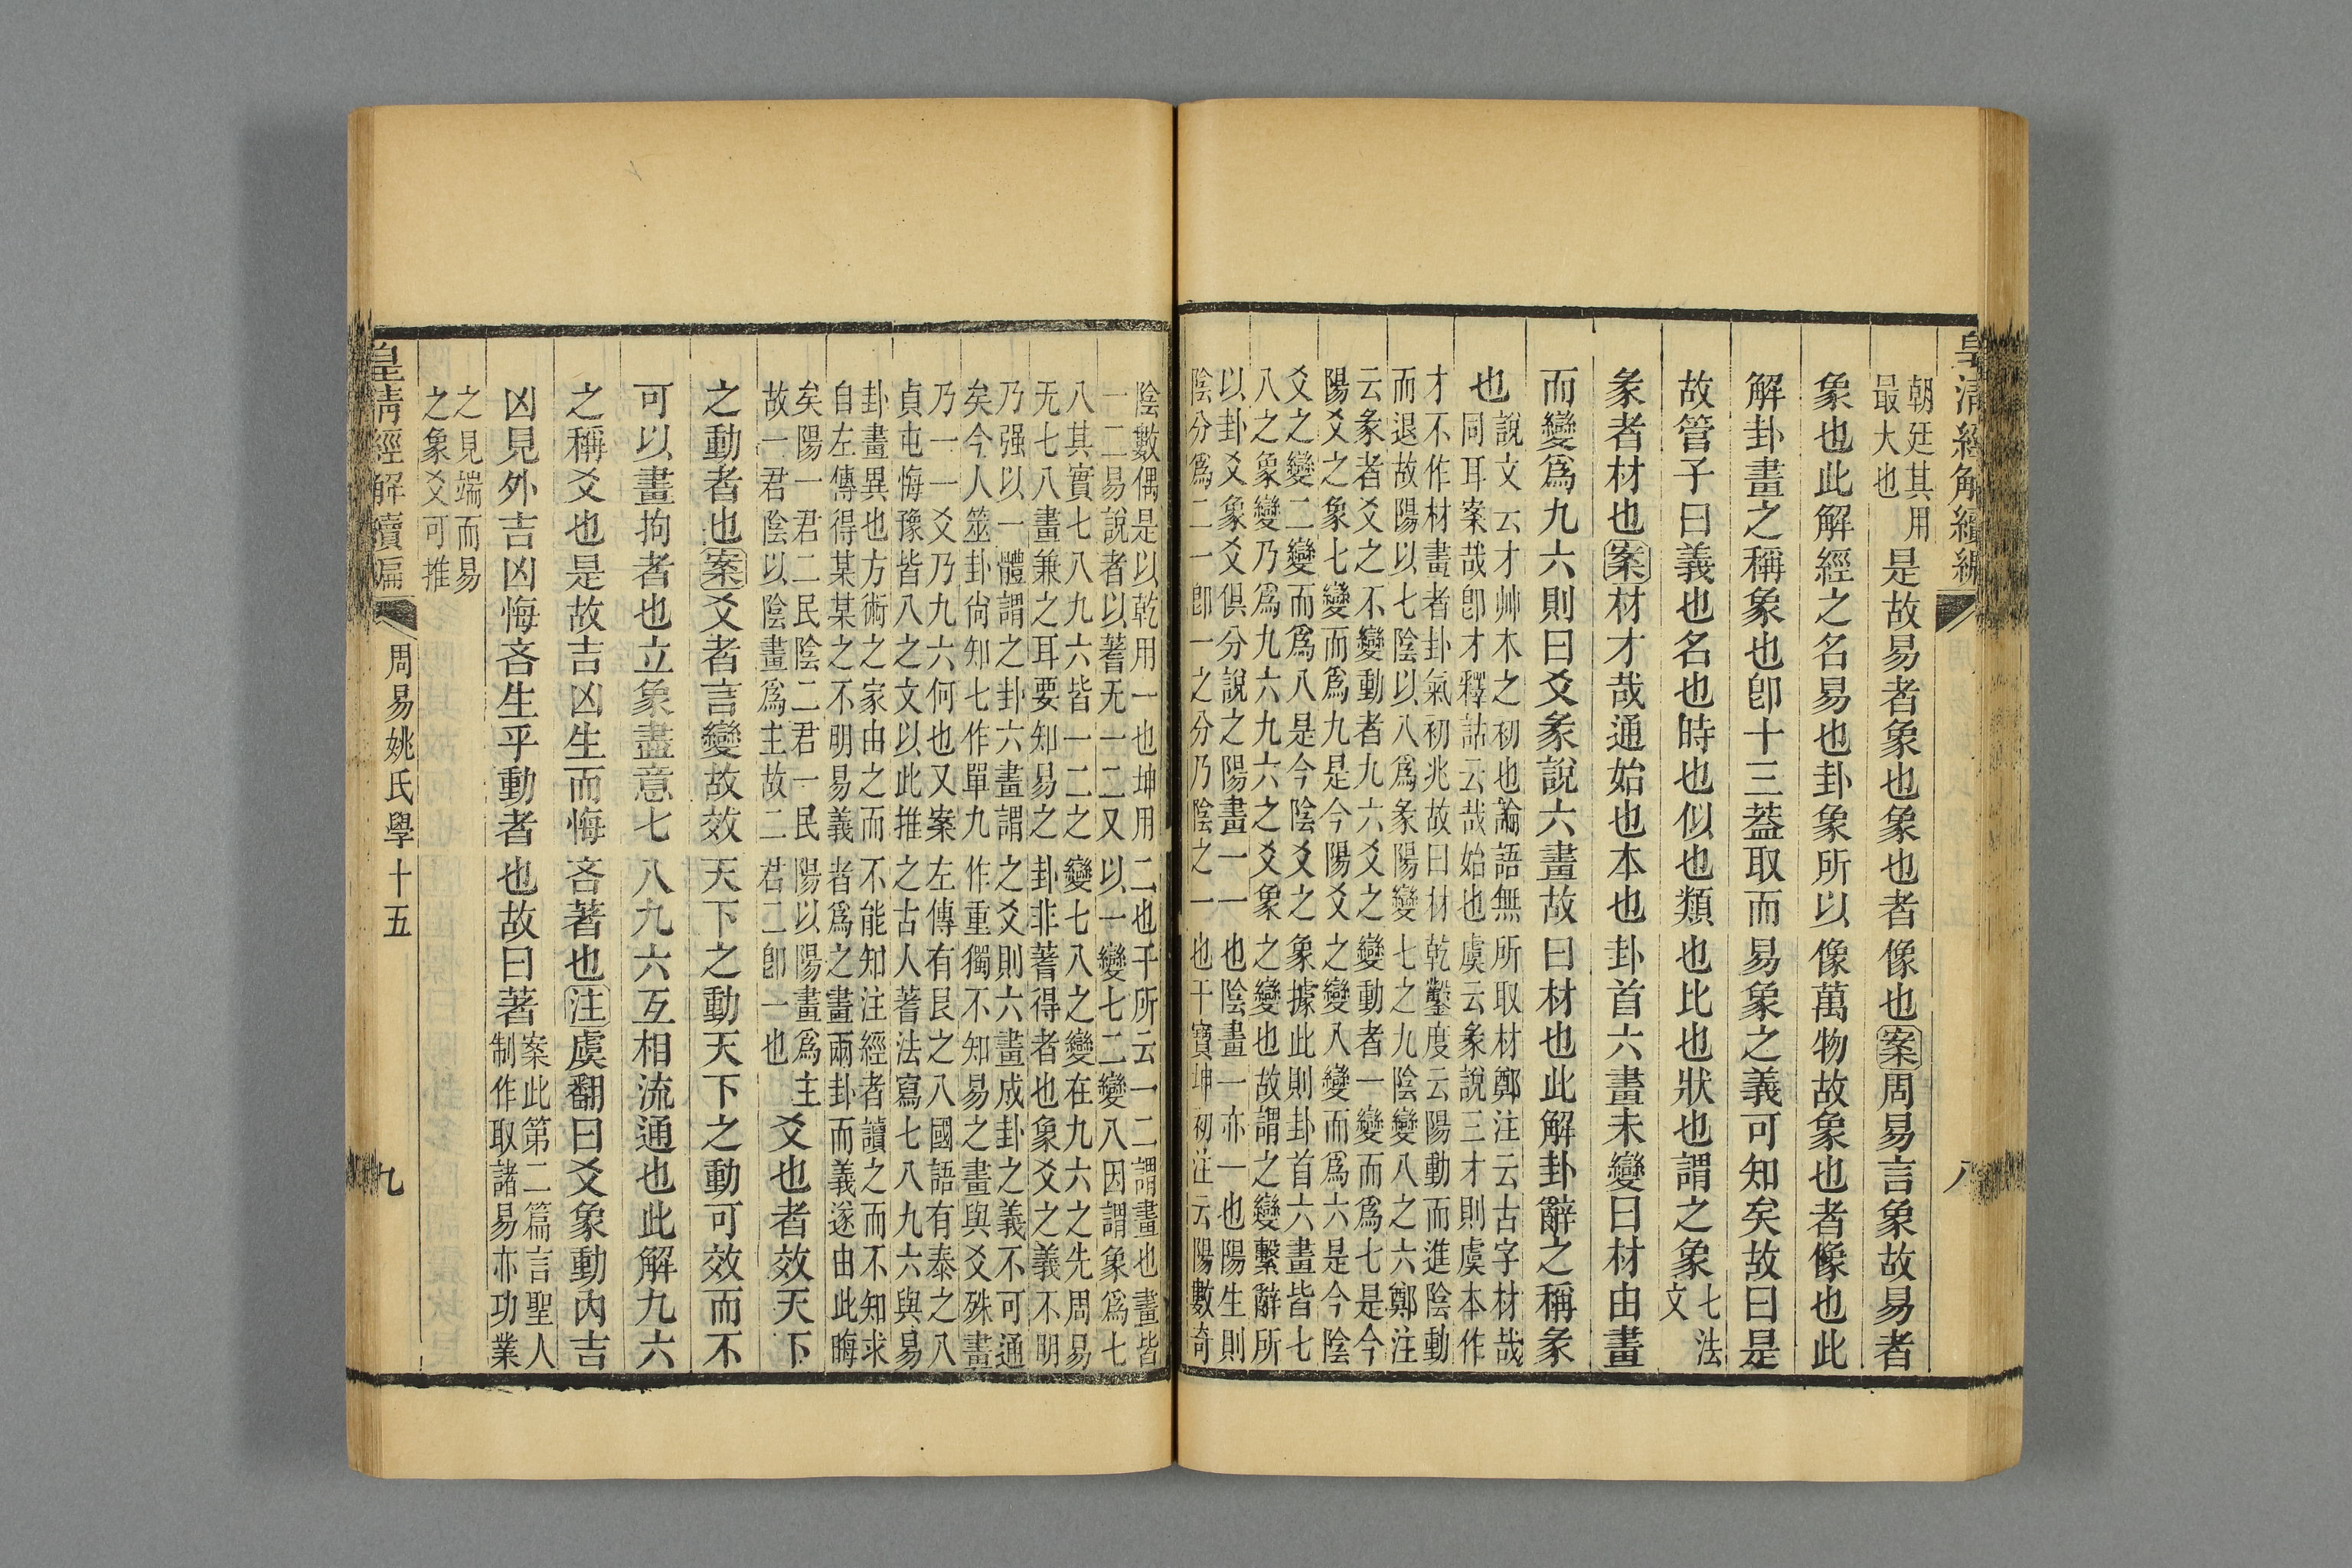 皇清經解續編 八
朝廷其用
最大也
是故易者象也象也者像也案周易言象故易者
象也此解經之名易也卦象所以像萬物故象也者像也此
解卦畫之稱象也卽十三葢取而易象之義可知矣故曰是
故管子曰義也名也時也似也類也比也狀也謂之象
七法
文
彖者材也案材才哉通始也本也卦首六畫未變曰材由畫
而變爲九六則曰爻彖說六畫故曰材也此解卦辭之稱彖
也
說文云才艸木之初也論語無所取材鄭注云古字材哉
同耳案哉卽才釋詁云哉始也虞云彖說三才則虞本作
才不作材畫者卦氣初兆故曰材乾鑿度云陽動而進陰動
而退故陽以七陰以八爲彖陽變七之九陰變八之六鄭注
云彖者爻之不變動者九六爻之變動者一變而爲七是今
陽爻之象七變而爲九是今陽爻之變八變而爲六是今陰
爻之變二變而爲八是今陰爻之象據此則卦首六畫皆七
八之象變乃爲九六九六之爻象之變也故謂之變繫辭所
以卦爻象爻俱分說之陽畫一一也陰畫一亦一也陽生則
陰分爲二一卽一之分乃陰之一也干寶坤初注云陽數奇
陰數偶是以乾用一也坤用二也干所云一二謂畫也畫皆
一二易說者以蓍无一二又以一變七二變八因謂象爲七
八其實七八九六皆一二之變七八之變在九六之先周易
无七八畫兼之耳要知易之卦非蓍得者也象爻之義不明
乃强以一體謂之卦六畫謂之爻則六畫成卦之義不可通
矣今人筮卦尙知七作單九作重獨不知易之畫與爻殊畫
乃一一爻乃九六何也又案左傳有艮之八國語有泰之八
貞屯悔豫皆八之文以此推之古人蓍法寫七八九六與易
卦畫異也方術之家由之而不能知注經者讀之而不知求
自左傳得某某之不明易義者爲之畫兩卦而義遂由此晦
矣陽一君二民陰二君一民陽以陽畫爲主
故一君陰以陰畫爲主故二君二卽一也
爻也者效天下
之動者也案爻者言變故效天下之動天下之動可效而不
可以畫拘者也立象盡意七八九六互相流通也此解九六
之稱爻也是故吉凶生而悔吝著也注虞翻曰爻象動內吉
凶見外吉凶悔吝生乎動者也故曰著
案此第二篇言聖人
制作取諸易亦功業
之見端而易
之象爻可推
皇清經解續編 周易姚氏學十五 九